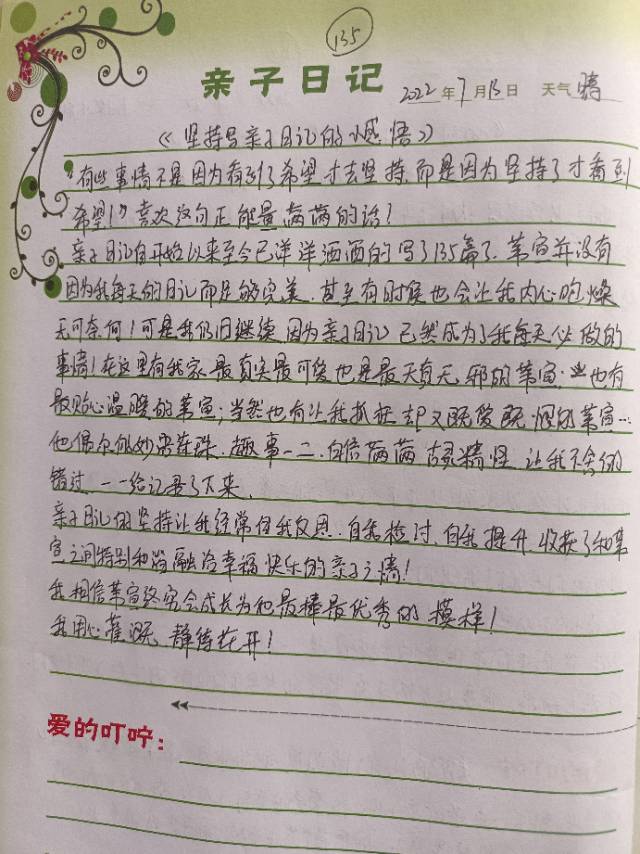 135
亲子日记 2022年7月13日 天气 晴
《坚持写亲子日记的感悟》
"有些事情不是因为看到了希望才去坚持,而是因为坚持了才看到
希望!"喜欢这句正能量满满的话!
亲子日记自开始以来至今已洋洋洒洒的写了135篇了.
并没有
因为我每天的日记而足够完美.甚至有时候也会让我内心
无可奈何!可是我仍旧继续.因为亲子日记已然成为了我每天必做的
事情!在这里有我家最真实最可爱也是最天真无邪的
也有
最贴心温暖的
当然也有让我抓狂却又既爱既恨的
他偶尔似妙语连珠.趣事一二.自信满满.古灵精怪.让我不舍的
错过.一一给记录了下来.
亲子日记的坚持让我经常自我反思.自我检讨.自我提升.收获了和
之间特别和谐融洽幸福快乐的亲子之情!
我相信
终究会成长为他最棒最优秀的模样!
我用心灌溉.静待花开!
爱的叮咛: